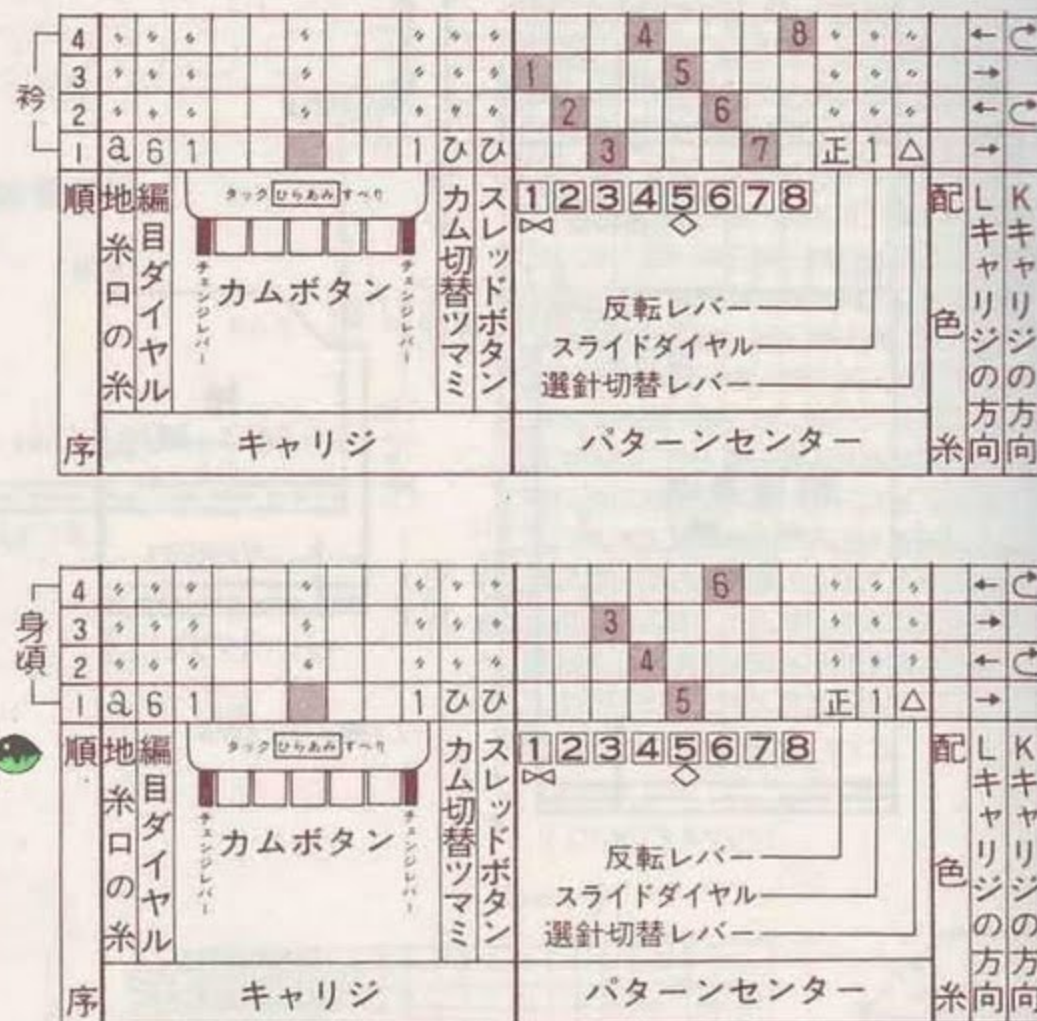 衿
4 〃 〃 〃 〃 〃 〃 〃 4 8 〃 〃 〃 ←
3 〃 〃 〃 〃 〃 〃 〃 1 5 〃 〃 〃 →
2 〃 〃 〃 〃 〃 〃 〃 2 6 〃 〃 〃 ←
1 a 6 1 1 ひ ひ 3 7 正 1 △ →
順序
地糸口の糸
編目ダイヤル
タック ひらあみ すべり
チェンジレバー
カムボタン
チェンジレバー
カム切替ツマミ
スレッドボタン
1 2 3 4 5 6 7 8
反転レバー
スライドダイヤル
選針切替レバー
配色糸
Lキャリジの方向
Kキャリジの方向
キャリジ
パターンセンター
身頃
4 〃 〃 〃 〃 〃 〃 〃 6 〃 〃 〃 ←
3 〃 〃 〃 〃 〃 〃 〃 3 〃 〃 〃 →
2 〃 〃 〃 〃 〃 〃 〃 4 〃 〃 〃 ←
1 a 6 1 1 ひ ひ 5 正 1 △ →
順序
地糸口の糸
編目ダイヤル
タック ひらあみ すべり
チェンジレバー
カムボタン
チェンジレバー
カム切替ツマミ
スレッドボタン
1 2 3 4 5 6 7 8
反転レバー
スライドダイヤル
選針切替レバー
配色糸
Lキャリジの方向
Kキャリジの方向
キャリジ
パターンセンター